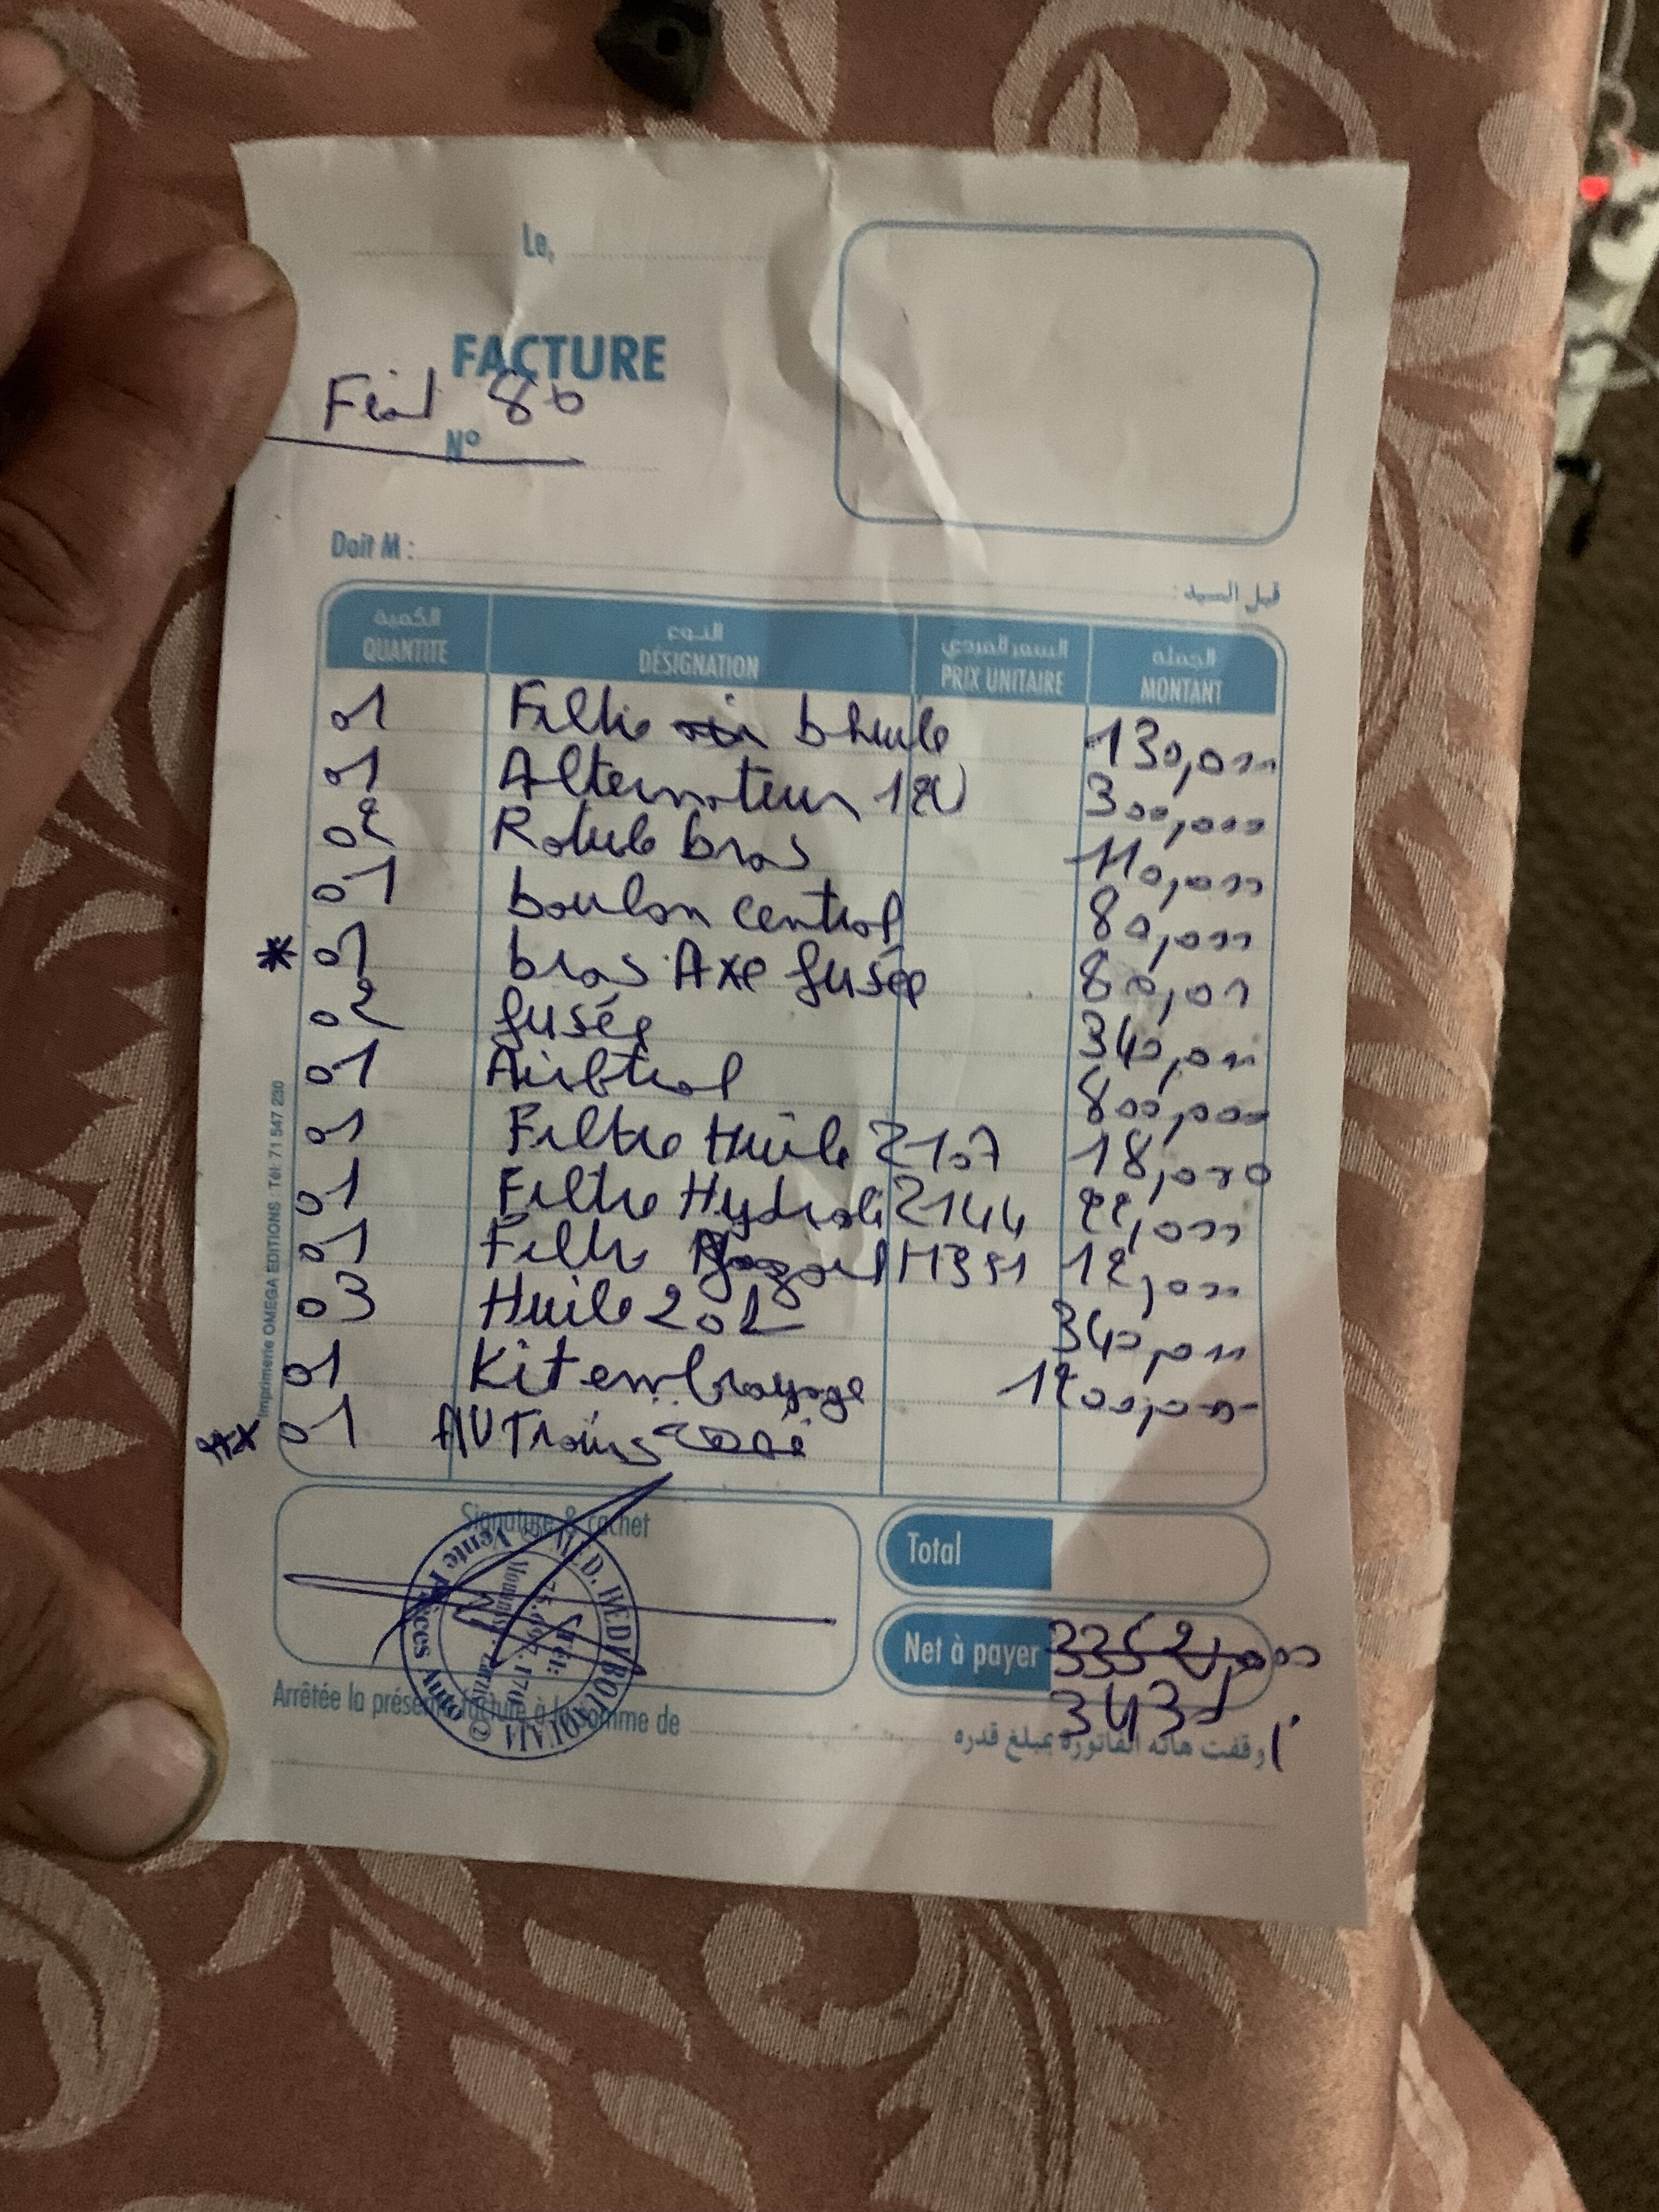 Le,
FACTURE
Fiat 80
N°
Doit M :
قبل السيد :
الكمية النوع السعر الفردي الجملة
QUANTITE DÉSIGNATION PRIX UNITAIRE MONTANT
01 Filtre b huile 130,000
01 Alternateur 12V 300,000
02 Rotule bras 110,000
01 boulon central 80,000
* 01 bras Axe fusée 80,00
02 fusée 340,000
01 800,000
01 Filtre Huile 2107 18,000
01 Filtre Hydroli 2144 22,000
01 Filtre gazoil 12,000
03 Huile 20L 340,000
01 Kit embrayage 1200,000
01 AV Trains
Signature & cachet
Vente Pièces Auto
Total
Net à payer 3352,000
343
Arrêtée la présente facture à la somme de
أوقفت هاته الفاتورة بمبلغ قدره
Imprimerie OMEGA EDITIONS : Tél: 71 547 230